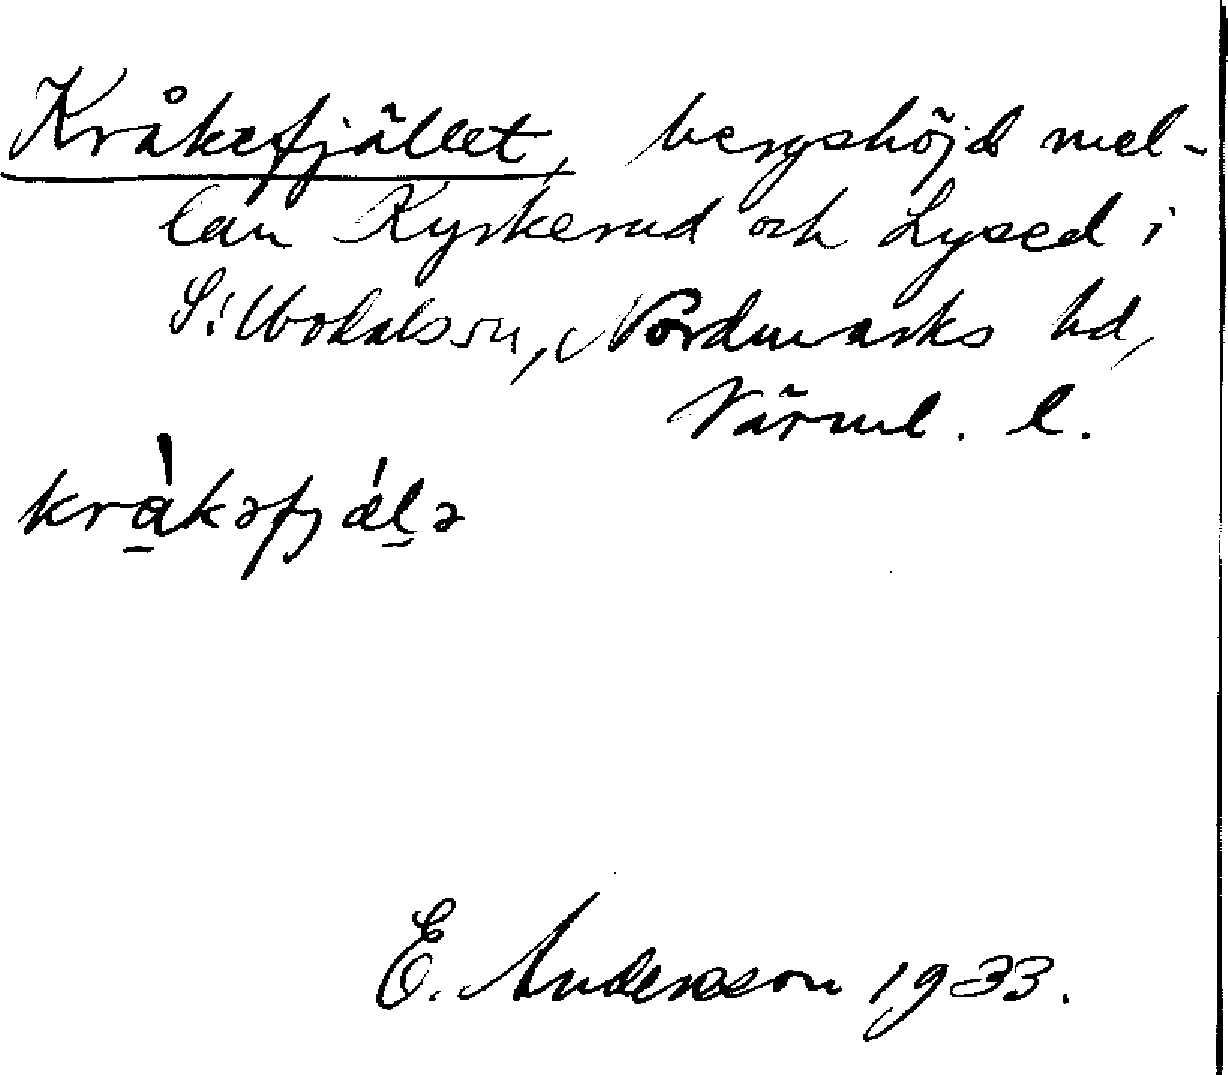 Kråkefjället, bergshöjd mel-
lan Kyrkerud och Lysed i
Silbodals sn, Nordmarks hd,
Värml. l.
kràkəfjálə
E. Andersson 1933.